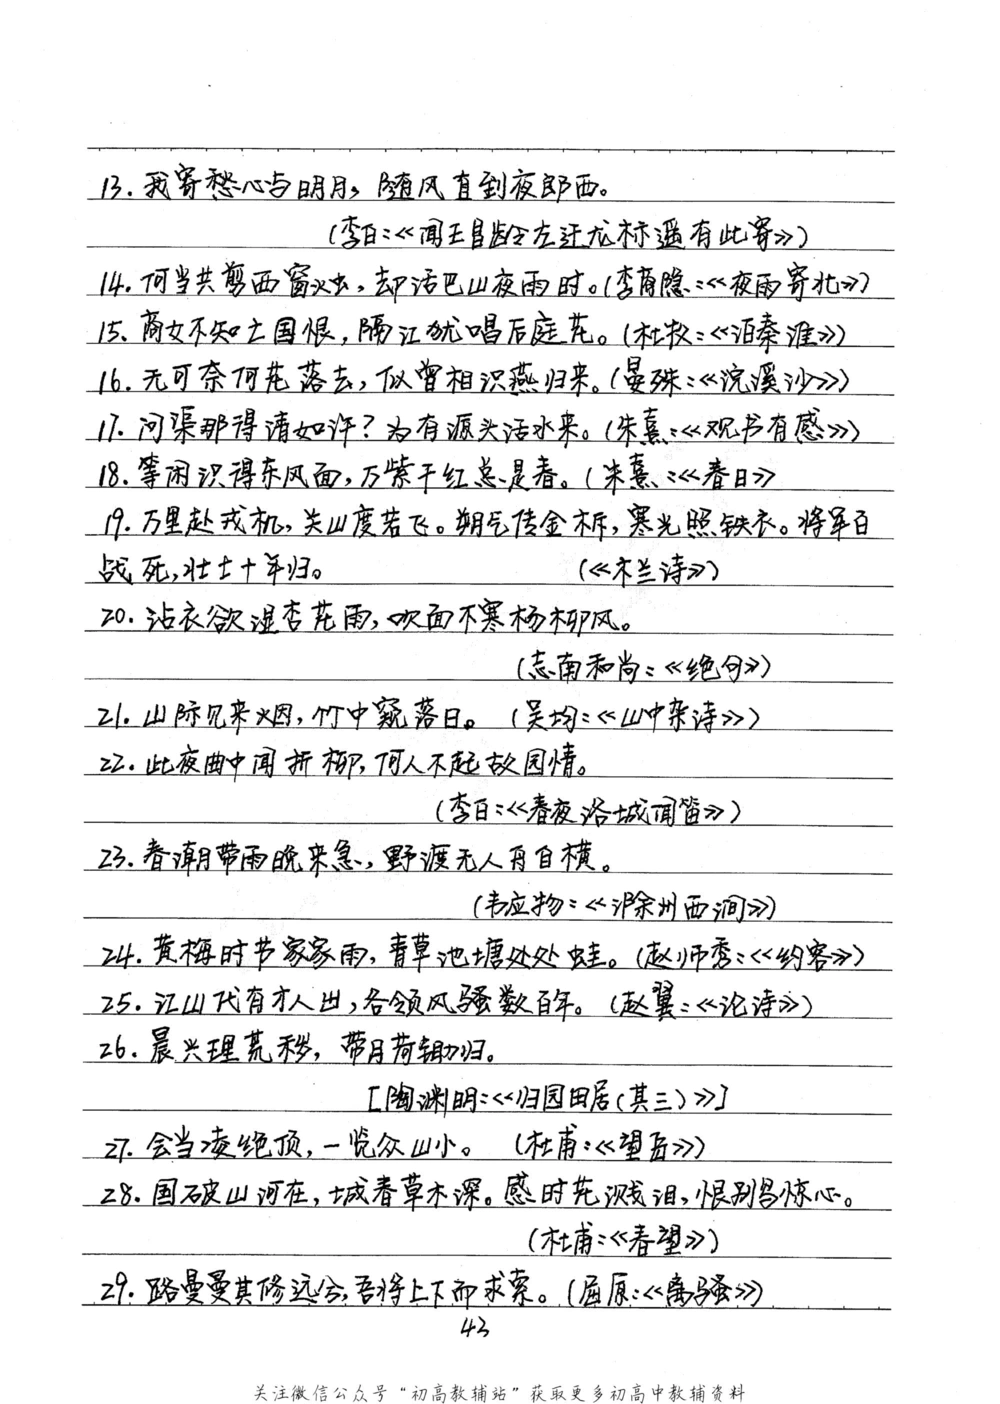 13. 我寄愁心与明月，随风直到夜郎西。
(李白：《闻王昌龄左迁龙标遥有此寄》)
14. 何当共剪西窗烛，却话巴山夜雨时。(李商隐：《夜雨寄北》)
15. 商女不知亡国恨，隔江犹唱后庭花。(杜牧：《泊秦淮》)
16. 无可奈何花落去，似曾相识燕归来。(晏殊：《浣溪沙》)
17. 问渠那得清如许？为有源头活水来。(朱熹：《观书有感》)
18. 等闲识得东风面，万紫千红总是春。(朱熹：《春日》
19. 万里赴戎机，关山度若飞。朔气传金柝，寒光照铁衣。将军百
战死，壮士十年归。 (《木兰诗》)
20. 沾衣欲湿杏花雨，吹面不寒杨柳风。
(志南和尚：《绝句》)
21. 山际见来烟，竹中窥落日。 (吴均：《山中杂诗》)
22. 此夜曲中闻折柳，何人不起故园情。
(李白：《春夜洛城闻笛》)
23. 春潮带雨晚来急，野渡无人舟自横。
(韦应物：《滁州西涧》)
24. 黄梅时节家家雨，青草池塘处处蛙。(赵师秀：《约客》)
25. 江山代有才人出，各领风骚数百年。(赵翼：《论诗》)
26. 晨兴理荒秽，带月荷锄归。
[陶渊明：《归园田居(其三)》]
27. 会当凌绝顶，一览众山小。 (杜甫：《望岳》)
28. 国破山河在，城春草木深。感时花溅泪，恨别鸟惊心。
(杜甫：《春望》)
29. 路曼曼其修远兮，吾将上下而求索。(屈原：《离骚》)
43
关注微信公众号“初高教辅站”获取更多初高中教辅资料